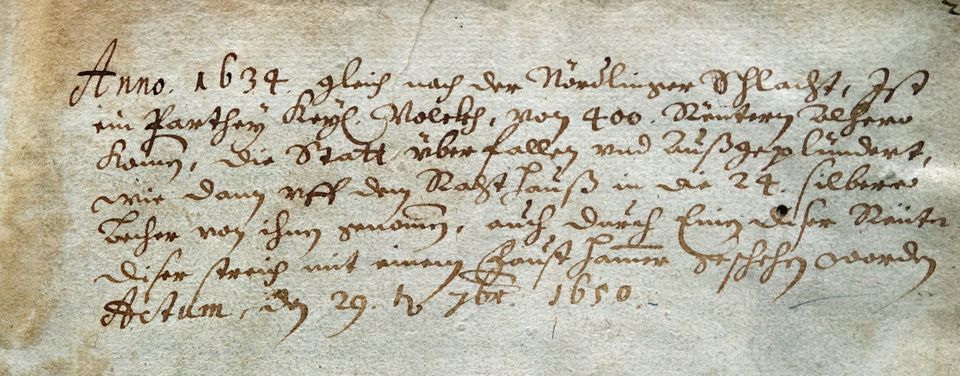 Anno. 1634. gleich nach der Nördlinger Schlacht, Ist
ein Parthey Keyß. Volckh, von 400. Reütern Alhero
Komen, die Statt überfallen vnd Außgeplündert,
wie dann vff dem Rathhauß in die 24. silberne
becher von ihnen genomen, auch durch Einen diser Reüter
diser streich mit einem Fausthamer beschehen worden
Actum, den 29. 7br. 1650.